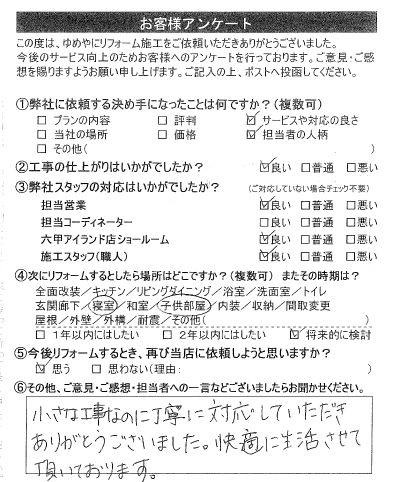 お客様アンケート
この度は、ゆめやにリフォーム施工をご依頼いただきありがとうございました。
今後のサービス向上のためお客様へのアンケートを行っております。ご意見・ご感
想を賜りますようお願い申し上げます。ご記入の上、ポストへ投函してください。
①弊社に依頼する決め手になったことは何ですか?(複数可)
□ プランの内容 □ 評判 ☑ サービスや対応の良さ
□ 当社の場所 □ 価格 ☑ 担当者の人柄
□ その他( )
②工事の仕上がりはいかがでしたか? ☑良い □普通 □悪い
③弊社スタッフの対応はいかがでしたか? (ご対応していない場合チェック不要)
担当営業 ☑良い □普通 □悪い
担当コーディネーター □良い □普通 □悪い
六甲アイランド店ショールーム ☑良い □普通 □悪い
施工スタッフ(職人) ☑良い □普通 □悪い
④次にリフォームするとしたら場所はどこですか?(複数可) またその時期は?
全面改装/キッチン/リビングダイニング/浴室/洗面室/トイレ
玄関廊下/寝室/和室/子供部屋/内装/収納/間取変更
屋根/外壁/外構/耐震/その他( )
□ 1年以内にはしたい □ 2年以内にはしたい ☑ 将来的に検討
⑤今後リフォームするとき、再び当店に依頼しようと思いますか?
☑ 思う □ 思わない(理由: )
⑥その他、ご意見・ご感想・担当者への一言などございましたらお聞かせください。
小さな工事なのに丁寧に対応していただき
ありがとうございました。快適に生活させて
頂いております。